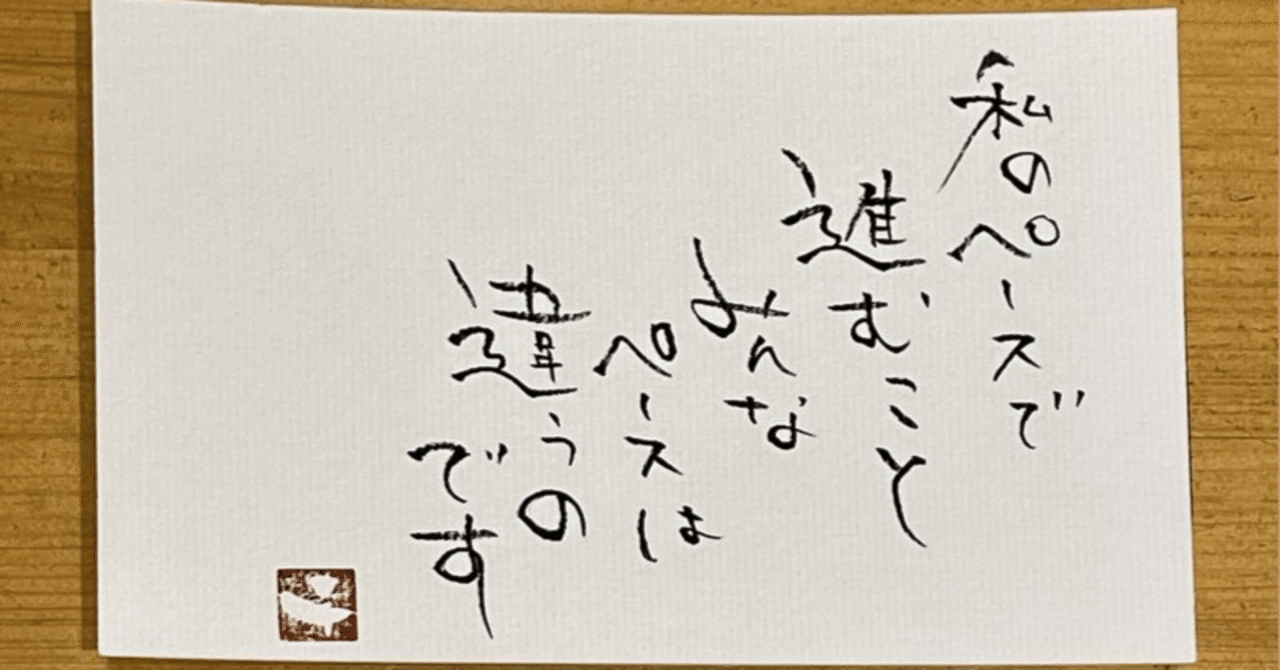 私のペースで
進むこと
みんな
ペースは
違うの
です